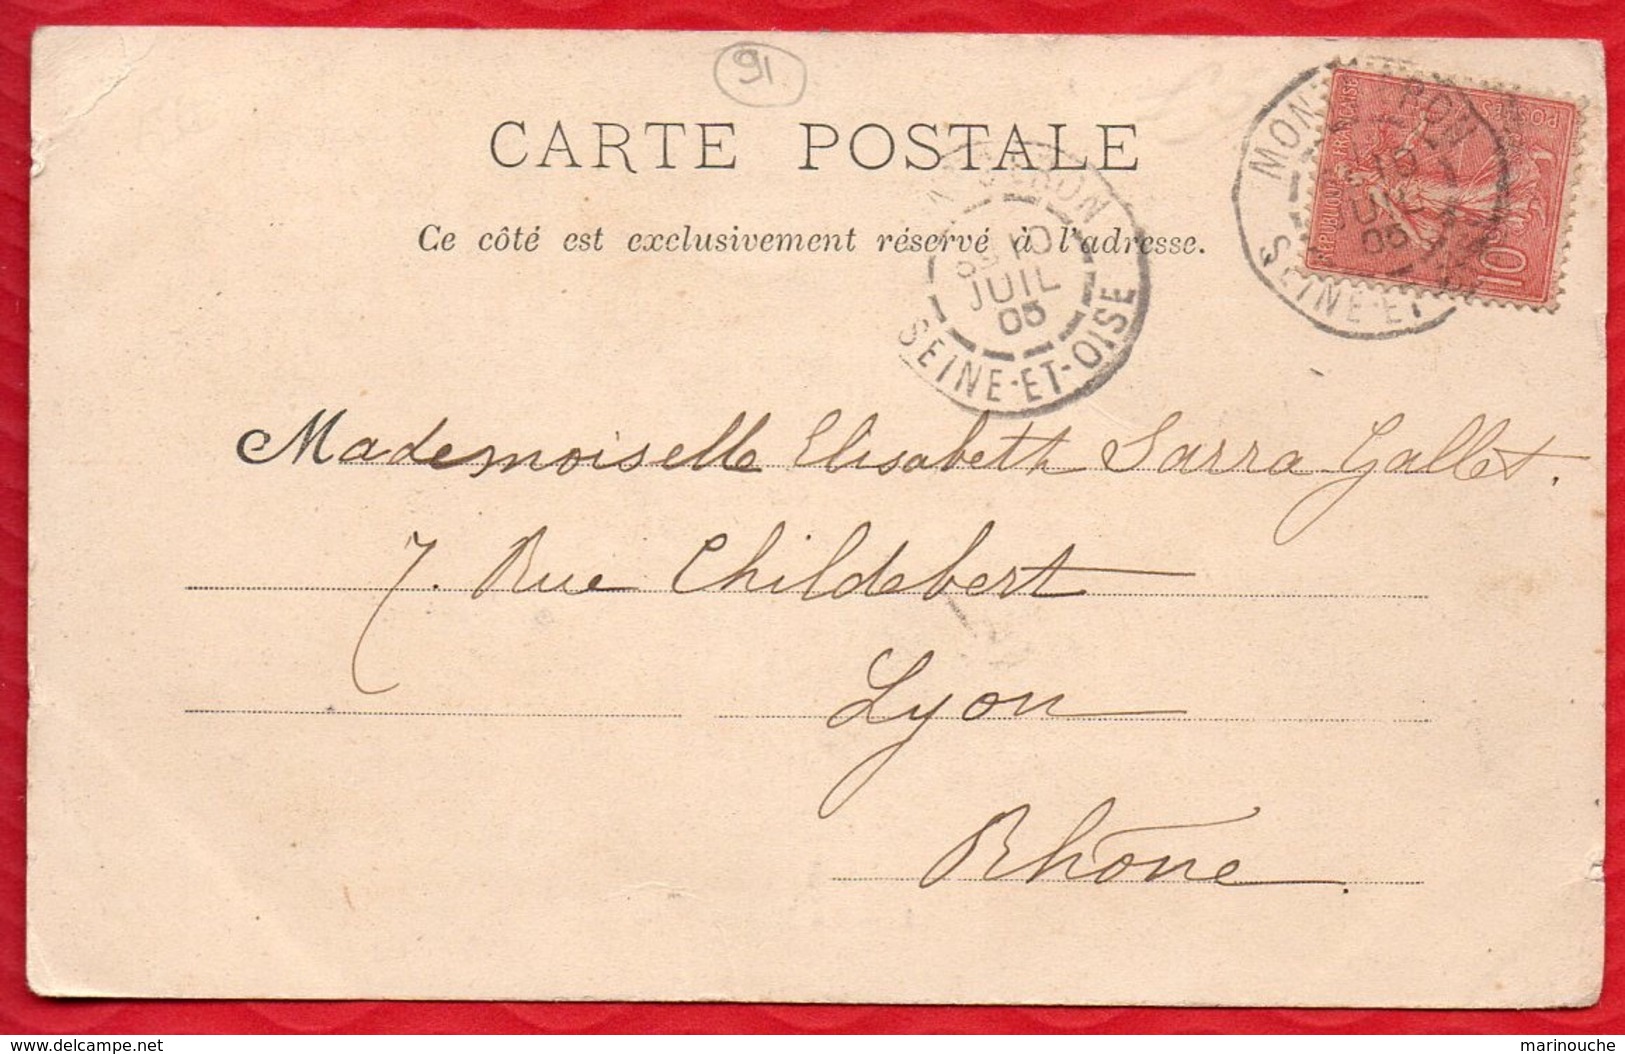 91
CARTE POSTALE
Ce côté est exclusivement réservé à l'adresse.
10
JUIL
05
SEINE-ET-OISE
RÉPUBLIQUE FRANÇAISE
POSTES
10
MON RON
10
JUIL
05
SEINE-ET
Mademoiselle Elisabeth Sarra-Gallet.
7. Rue Childebert
Lyon
Rhône.
delcampe.net
marinouche